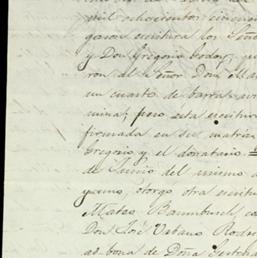 mil ochocientos cincuen
garon escritura los Señor
y Don Gregorio Godoy, qu
ron al Señor Don Ma
un cuarto de barra
mina; pero esta escritura
firmada en su matriz
Gregorio y el donatario
de Junio del mismo a
otorgo otra escritu
Mateo
Don José Urbano Rodri
de Doña